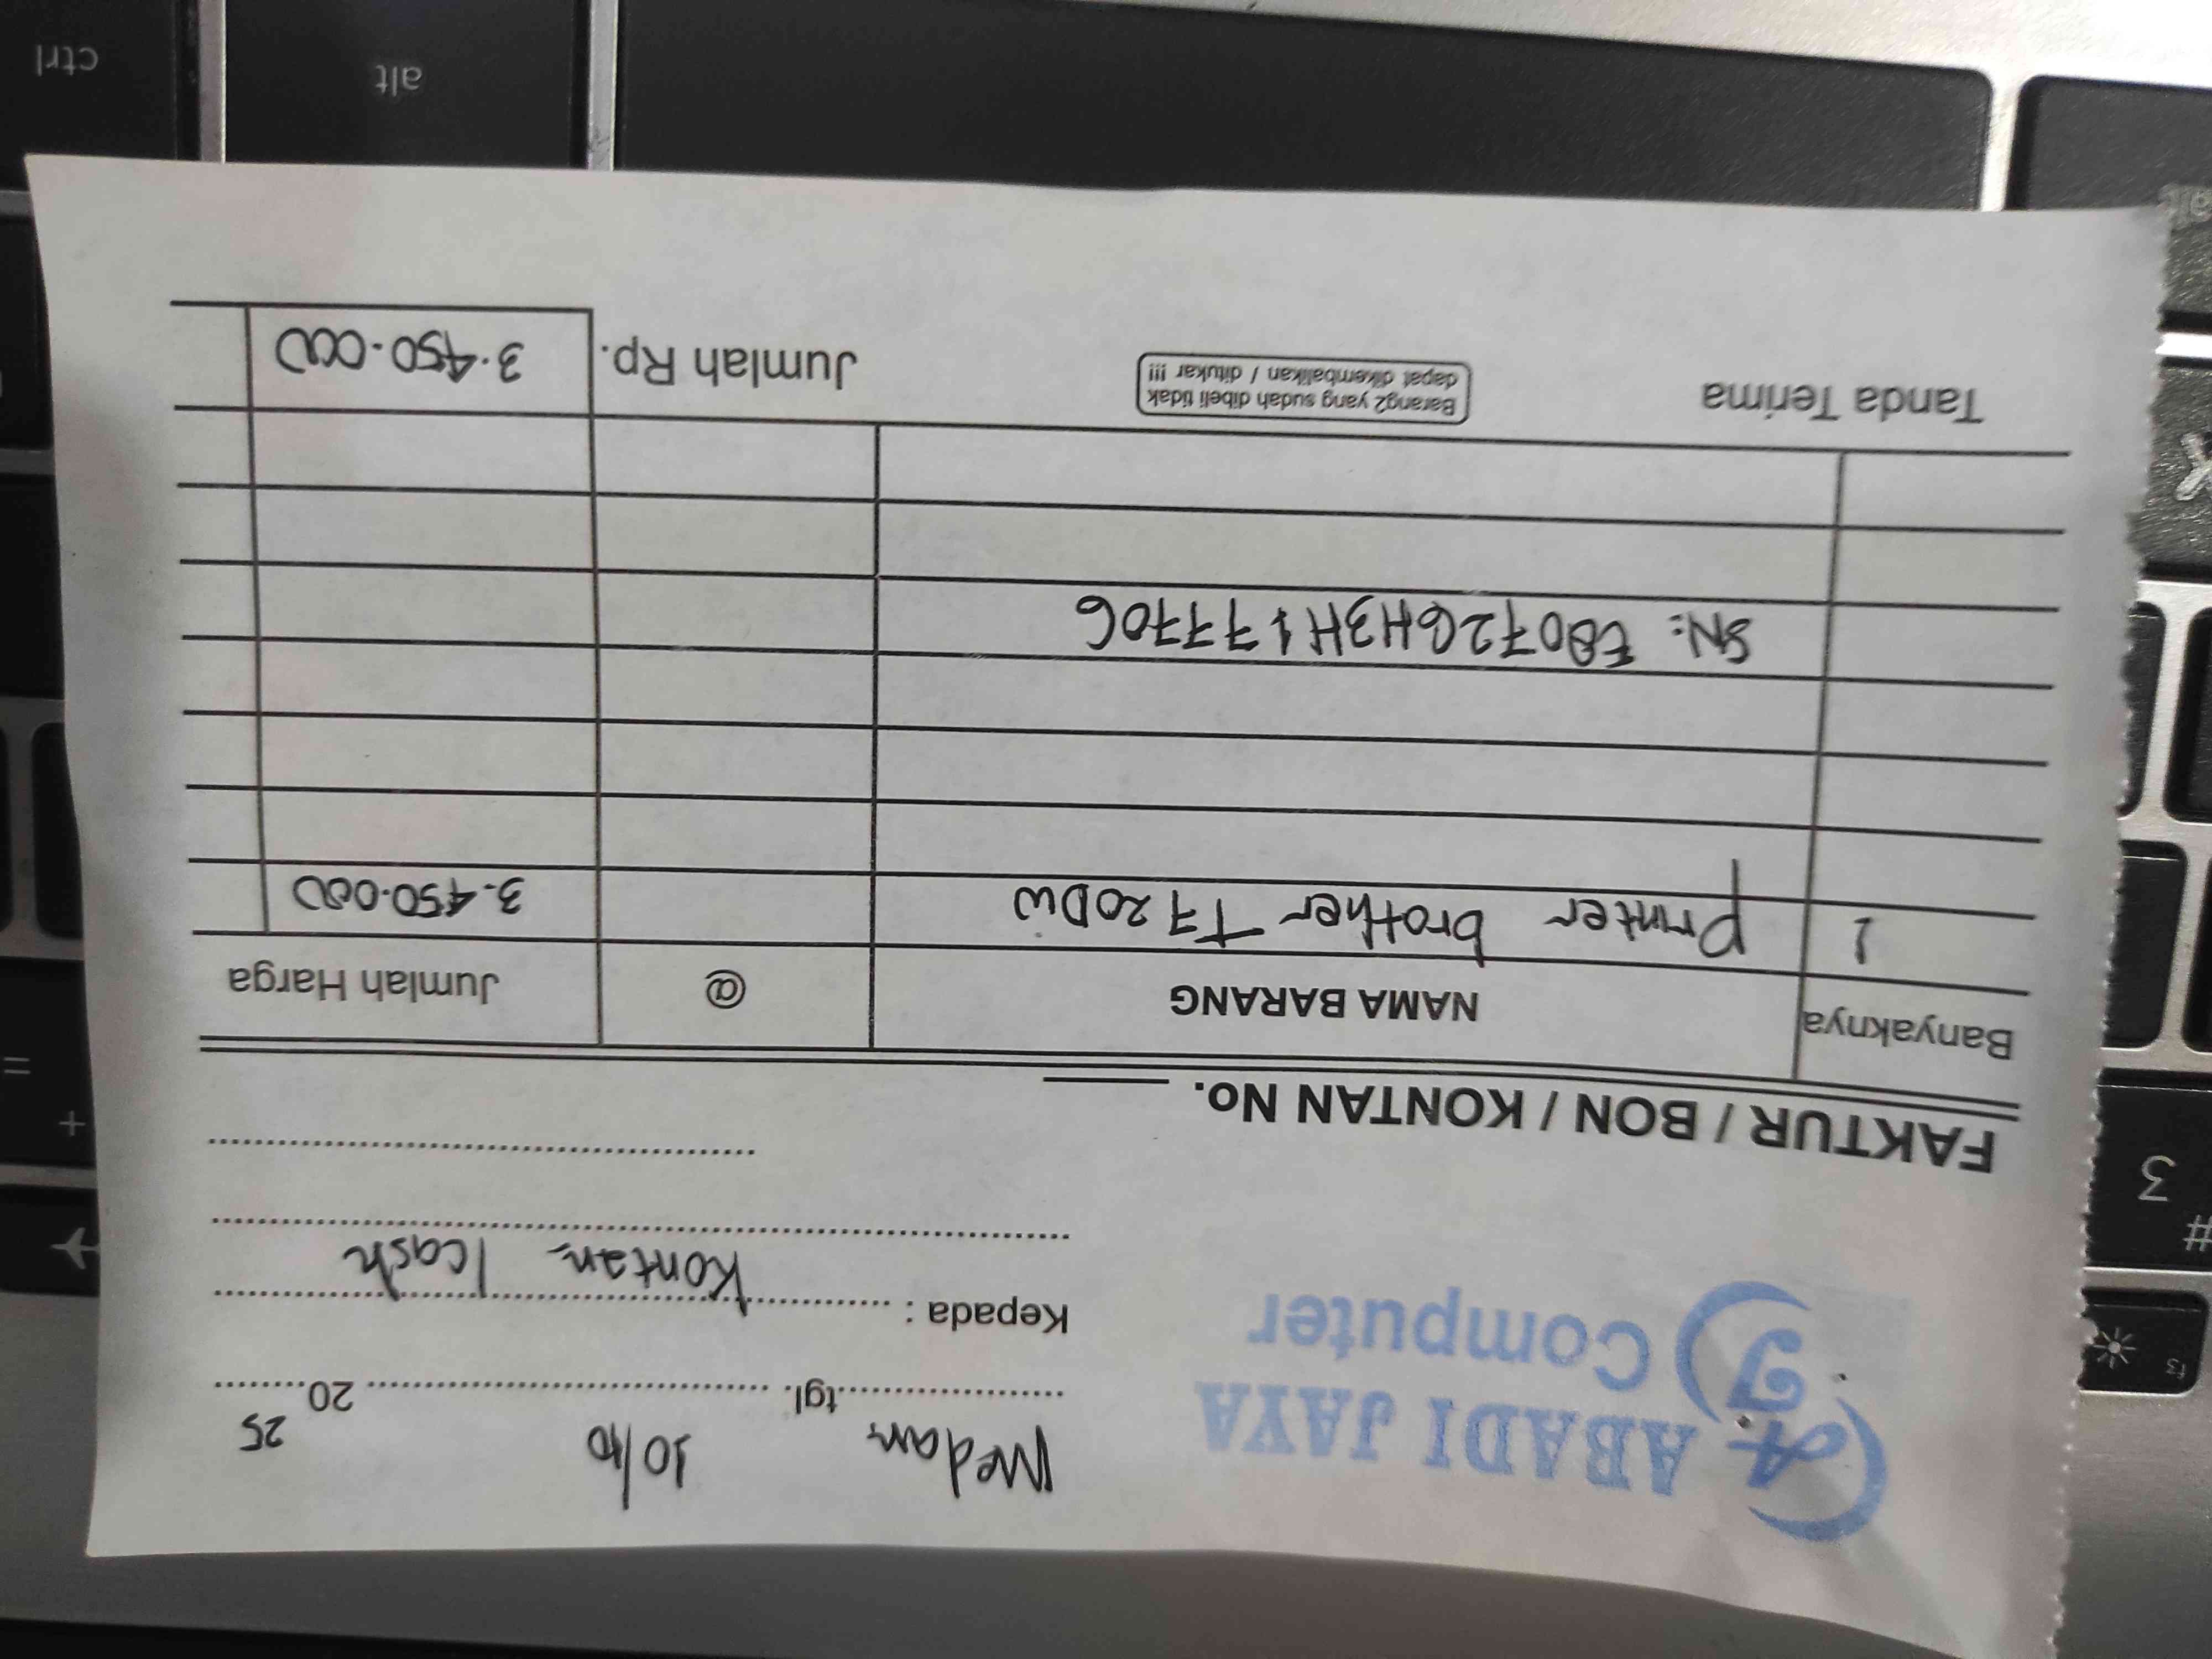 A. ABADI JAYA
J. Computer
Medan tgl. 10/10 20 25
Kepada : Kontan / Cash
FAKTUR / BON / KONTAN No.
Banyaknya NAMA BARANG @ Jumlah Harga
1 Printer brother T720DW 3.450.000
SN:
Tanda Terima
Barang2 yang sudah dibeli tidak
dapat dikembalikan / ditukar !!!
Jumlah Rp. 3.450.000
ctrl
alt
alt
K
=
+
3
#
f3